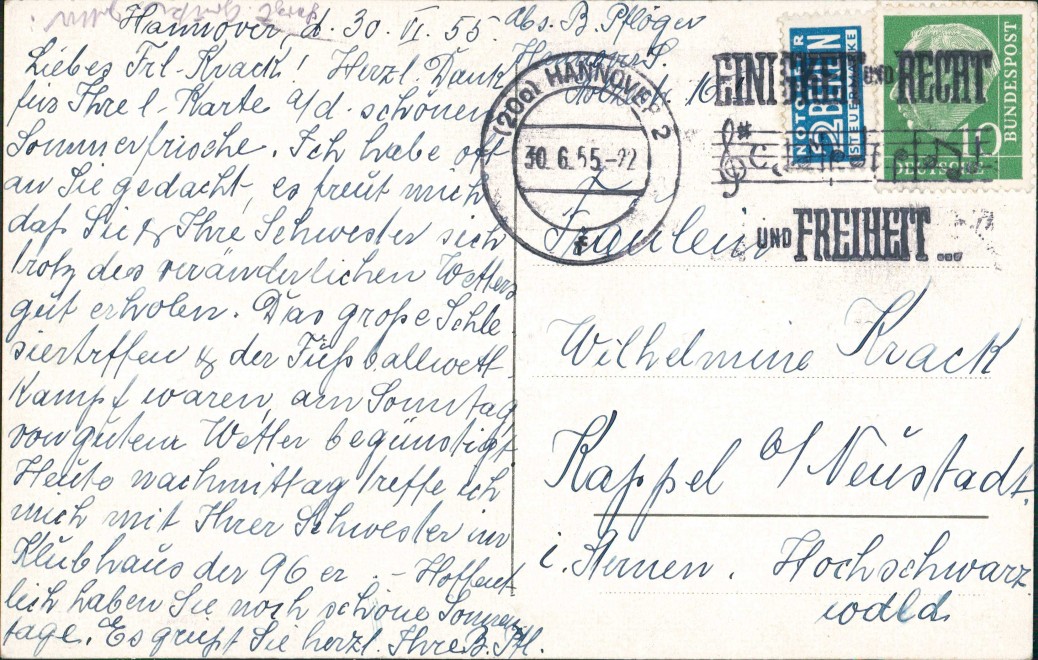 Hannover, d. 30. VI. 55.
Liebes Frl. Krack! Herzl. Dank
für Ihre l. Karte a/d. schönen
Sommerfrische. Ich habe oft
an Sie gedacht, es freut mich
daß Sie & Ihre Schwester sich
trotz des veränderlichen Wetters
gut erholen. Das große Schle-
siertreffen & der Fußballwett-
kampf waren am Sonntag
von gutem Wetter begünstigt
Heute nachmittag treffe ich
mich mit Ihrer Schwester im
Klubhaus der 96 er. - Hoffent
lich haben Sie noch schöne Sonnen
tage. Es grüßt Sie herzl. Ihre B. Pfl.
Abs. B. Pflöger
Hannover S.
16
(20a) HANNOVER 2
30. 6. 55.-22
f
EINIGKEIT UND RECHT
UND FREIHEIT...
NOTOPFER
2 BERLIN
STEUERMARKE
10
DEUTSCHE
BUNDESPOST
Fräulein
Wilhelmine Krack
Kappel b/ Neustadt
i. Sternen. Hochschwarz
wald